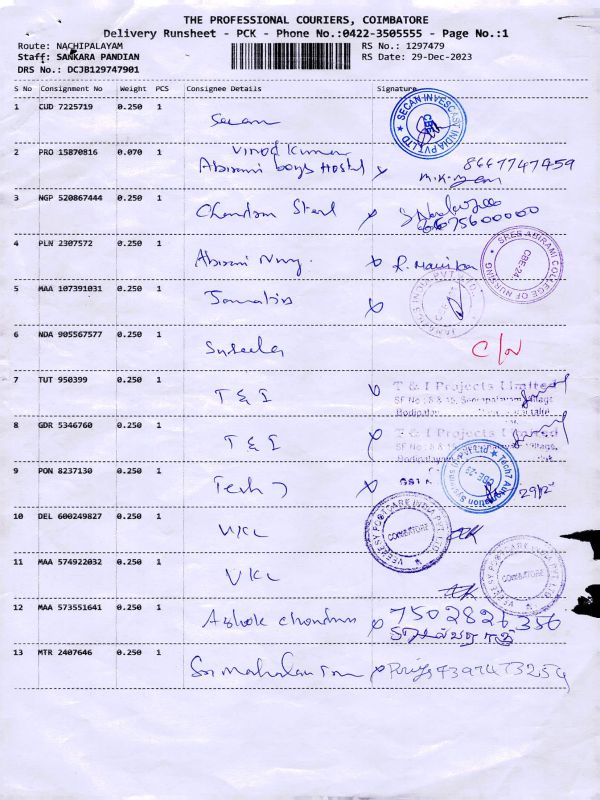 THE PROFESSIONAL COURIERS, COIMBATORE
Delivery Runsheet - PCK - Phone No.:0422-3505555 - Page No.:1
Route: NACHIPALAYAM
RS No.: 1297479
Staff: SANKARA PANDIAN
RS Date: 29-Dec-2023
DRS No.: DCJB129747901
S No Consignment No Weight PCS Consignee Details Signature
1 CUD 7225719 0.250 1 Secan
SECAN INVESCAST INDIA PVT LTD
2 PRO 15870816 0.070 1 Vinod Kumar
Abirami boys Hostel
8667747459
3 NGP 520867444 0.250 1 Chandam Steel
6675600000
4 PLN 2307572 0.250 1 Abirami Nurg.
SREE ABIRAMI COLLEGE OF NURSING
CBE-24
5 MAA 107391031 0.250 1
6 NDA 905567577 0.250 1 Suseela
C/N
7 TUT 950399 0.250 1 T & I
T & I Projects Limited
SF No : 8 & 15, Seerapalayam Village,
8 GDR 5346760 0.250 1 T & I
T & I Projects Limited
9 PON 8237130 0.250 1 Tech 7
29/12
10 DEL 600249827 0.250 1 VKL
VEEKESY POLYCARE INDIA PVT. LTD.
COIMBATORE
11 MAA 574922032 0.250 1 VKL
VEEKESY POLYCARE INDIA PVT. LTD.
COIMBATORE
12 MAA 573551641 0.250 1 Ashok Chandru
7502826356
13 MTR 2407646 0.250 1 Sri Mahalaxmi
Priya 9394733259